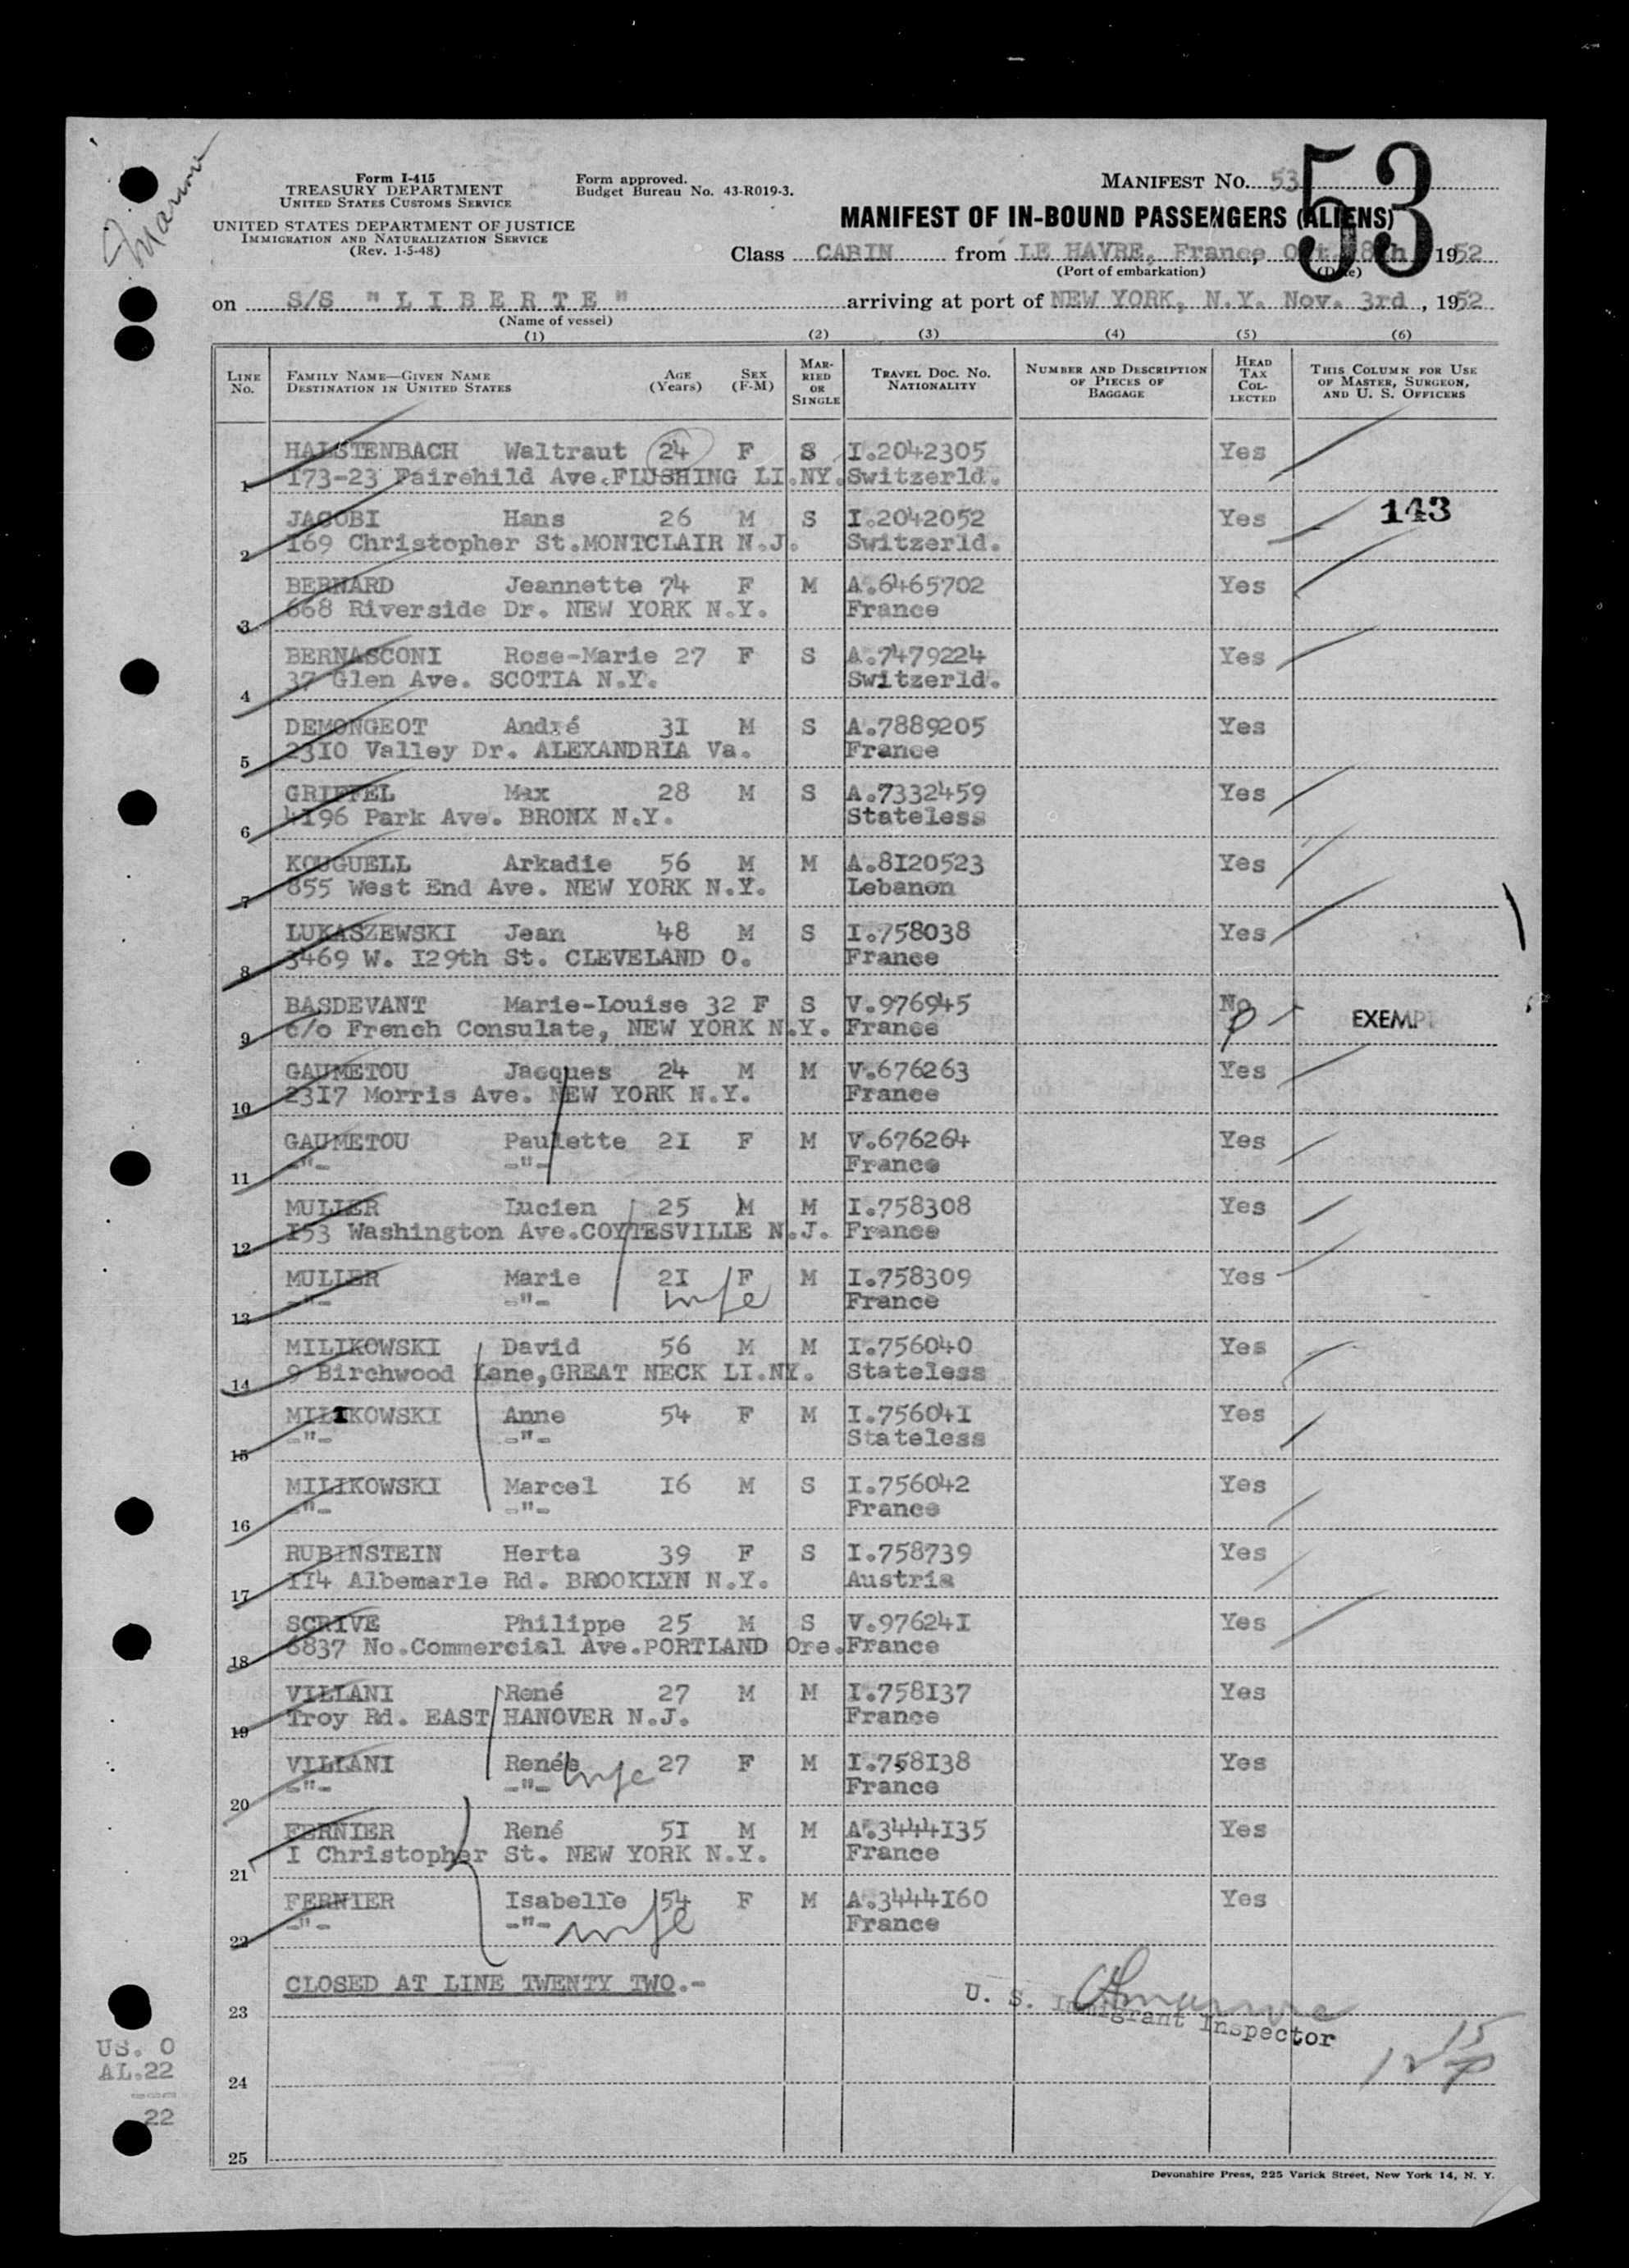 Form I-415
TREASURY DEPARTMENT
UNITED STATES CUSTOMS SERVICE
UNITED STATES DEPARTMENT OF JUSTICE
IMMIGRATION AND NATURALIZATION SERVICE
(Rev. 1-5-48)
Form approved.
Budget Bureau No. 43-R019-3.
MANIFEST NO. 53
53
MANIFEST OF IN-BOUND PASSENGERS (ALIENS)
Class CABIN from LE HAVRE, France, 1952
(Port of embarkation) (Date)
on S/S "LIBERTE" arriving at port of NEW YORK, N.Y. Nov. 3rd, 1952
(Name of vessel)
(1) (2) (3) (4) (5) (6)
LINE NO. FAMILY NAME—GIVEN NAME DESTINATION IN UNITED STATES AGE (Years) SEX (F-M) MARRIED OR SINGLE TRAVEL DOC. NO. NATIONALITY NUMBER AND DESCRIPTION OF PIECES OF BAGGAGE HEAD TAX COLLECTED THIS COLUMN FOR USE OF MASTER, SURGEON, AND U. S. OFFICERS
HALSTENBACH Waltraut 24 F S I.2042305 Yes
1 173-23 Fairchild Ave.FLUSHING LI.NY. Switzerld.
JACOBI Hans 26 M S I.2042052 Yes 143
2 169 Christopher St.MONTCLAIR N.J. Switzerld.
BERNARD Jeannette 74 F M A.6465702 Yes
3 668 Riverside Dr. NEW YORK N.Y. France
BERNASCONI Rose-Marie 27 F S A.7479224 Yes
4 37 Glen Ave. SCOTIA N.Y. Switzerld.
DEMONGEOT André 3I M S A.7889205 Yes
5 23I0 Valley Dr. ALEXANDRIA Va. France
GRIFFEL Max 28 M S A.7332459 Yes
6 4I96 Park Ave. BRONX N.Y. Stateless
KOUGUELL Arkadie 56 M M A.8I20523 Yes
7 855 West End Ave. NEW YORK N.Y. Lebanon
LUKASZEWSKI Jean 48 M S I.758038 Yes
8 3469 W. I29th St. CLEVELAND O. France
BASDEVANT Marie-Louise 32 F S V.976945 No EXEMPT
9 c/o French Consulate, NEW YORK N.Y. France
GAUMETOU Jacques 24 M M V.676263 Yes
10 23I7 Morris Ave. NEW YORK N.Y. France
GAUMETOU Paulette 2I F M V.676264 Yes
11 -"- -"- France
MULLER Lucien 25 M M I.758308 Yes
12 I53 Washington Ave.COYTESVILLE N.J. France
MULLER Marie 2I F M I.758309 Yes
13 -"- -"- wife France
MILIKOWSKI David 56 M M I.756040 Yes
14 9 Birchwood Lane,GREAT NECK LI.NY. Stateless
MILIKOWSKI Anne 54 F M I.75604I Yes
15 -"- -"- Stateless
MILIKOWSKI Marcel I6 M S I.756042 Yes
16 -"- -"- France
RUBINSTEIN Herta 39 F S I.758739 Yes
17 II4 Albemarle Rd. BROOKLYN N.Y. Austria
SCRIVE Philippe 25 M S V.97624I Yes
18 6837 No.Commercial Ave.PORTLAND Ore. France
VILLANI René 27 M M I.758I37 Yes
19 Troy Rd. EAST HANOVER N.J. France
VILLANI Renée wife 27 F M I.758I38 Yes
20 -"- -"- France
FERNIER René 5I M M A.3444I35 Yes
21 I Christopher St. NEW YORK N.Y. France
FERNIER Isabelle 54 F M A.3444I60 Yes
22 -"- -"- wife France
CLOSED AT LINE TWENTY TWO.-
23
U. S. Immigrant Inspector
US. 0
AL.22
24
22
25
Devonshire Press, 225 Varick Street, New York 14, N. Y.